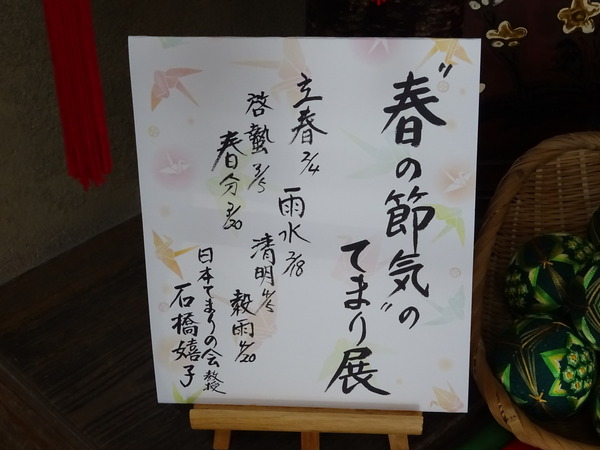 "春の節気"の
てまり展
立春2/4
雨水2/18
啓蟄3/5
春分3/20
清明4/5
穀雨4/20
日本てまりの会教授
石橋嬉子